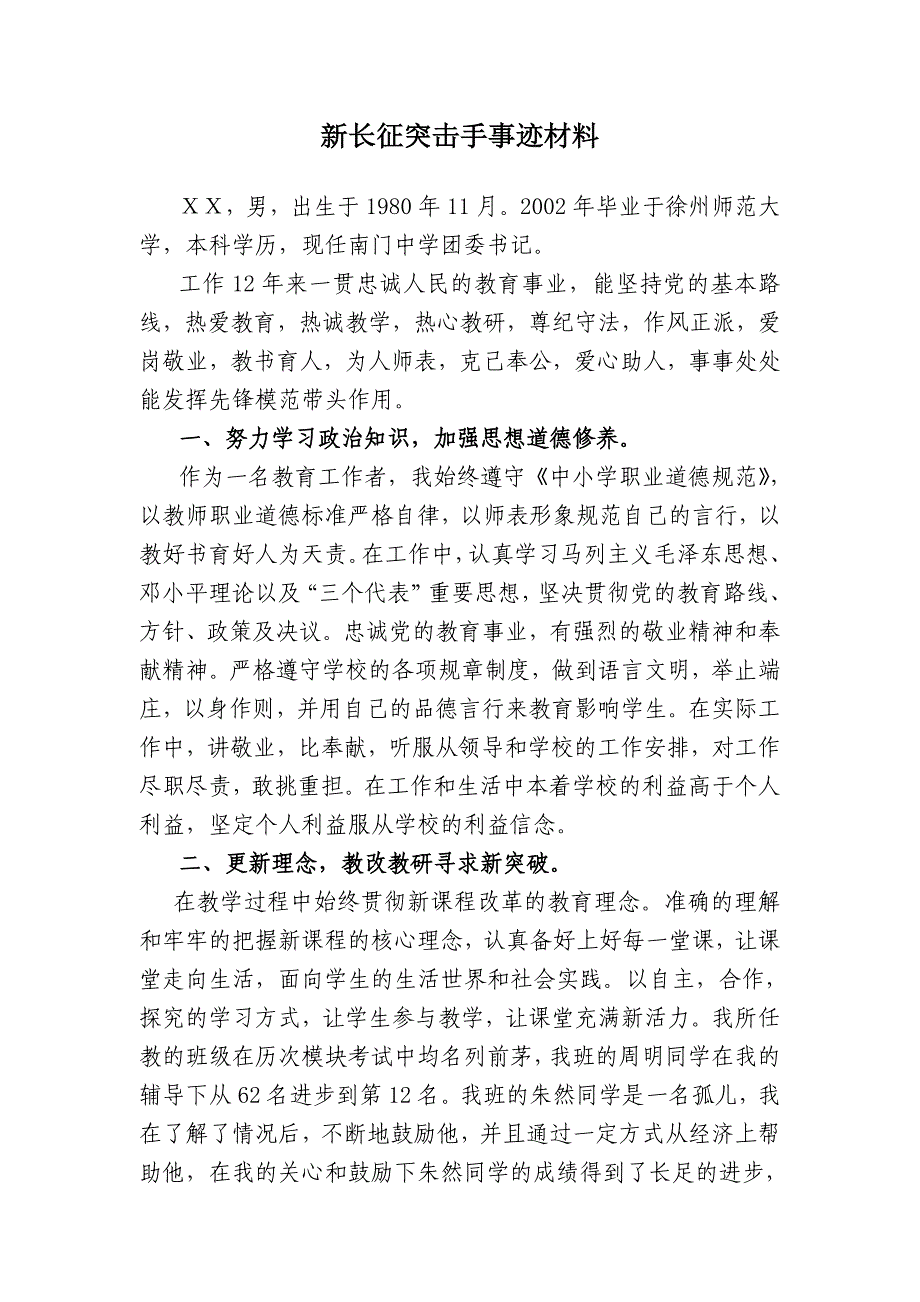 新长征突击手事迹材料
ＸＸ，男，出生于1980年11月。2002年毕业于徐州师范大
学，本科学历，现任南门中学团委书记。
工作12年来一贯忠诚人民的教育事业，能坚持党的基本路
线，热爱教育，热诚教学，热心教研，尊纪守法，作风正派，爱
岗敬业，教书育人，为人师表，克己奉公，爱心助人，事事处处
能发挥先锋模范带头作用。
一、努力学习政治知识，加强思想道德修养。
作为一名教育工作者，我始终遵守《中小学职业道德规范》，
以教师职业道德标准严格自律，以师表形象规范自己的言行，以
教好书育好人为天责。在工作中，认真学习马列主义毛泽东思想、
邓小平理论以及“三个代表”重要思想，坚决贯彻党的教育路线、
方针、政策及决议。忠诚党的教育事业，有强烈的敬业精神和奉
献精神。严格遵守学校的各项规章制度，做到语言文明，举止端
庄，以身作则，并用自己的品德言行来教育影响学生。在实际工
作中，讲敬业，比奉献，听服从领导和学校的工作安排，对工作
尽职尽责，敢挑重担。在工作和生活中本着学校的利益高于个人
利益，坚定个人利益服从学校的利益信念。
二、更新理念，教改教研寻求新突破。
在教学过程中始终贯彻新课程改革的教育理念。准确的理解
和牢牢的把握新课程的核心理念，认真备好上好每一堂课，让课
堂走向生活，面向学生的生活世界和社会实践。以自主，合作，
探究的学习方式，让学生参与教学，让课堂充满新活力。我所任
教的班级在历次模块考试中均名列前茅，我班的周明同学在我的
辅导下从62名进步到第12名。我班的朱然同学是一名孤儿，我
在了解了情况后，不断地鼓励他，并且通过一定方式从经济上帮
助他，在我的关心和鼓励下朱然同学的成绩得到了长足的进步，